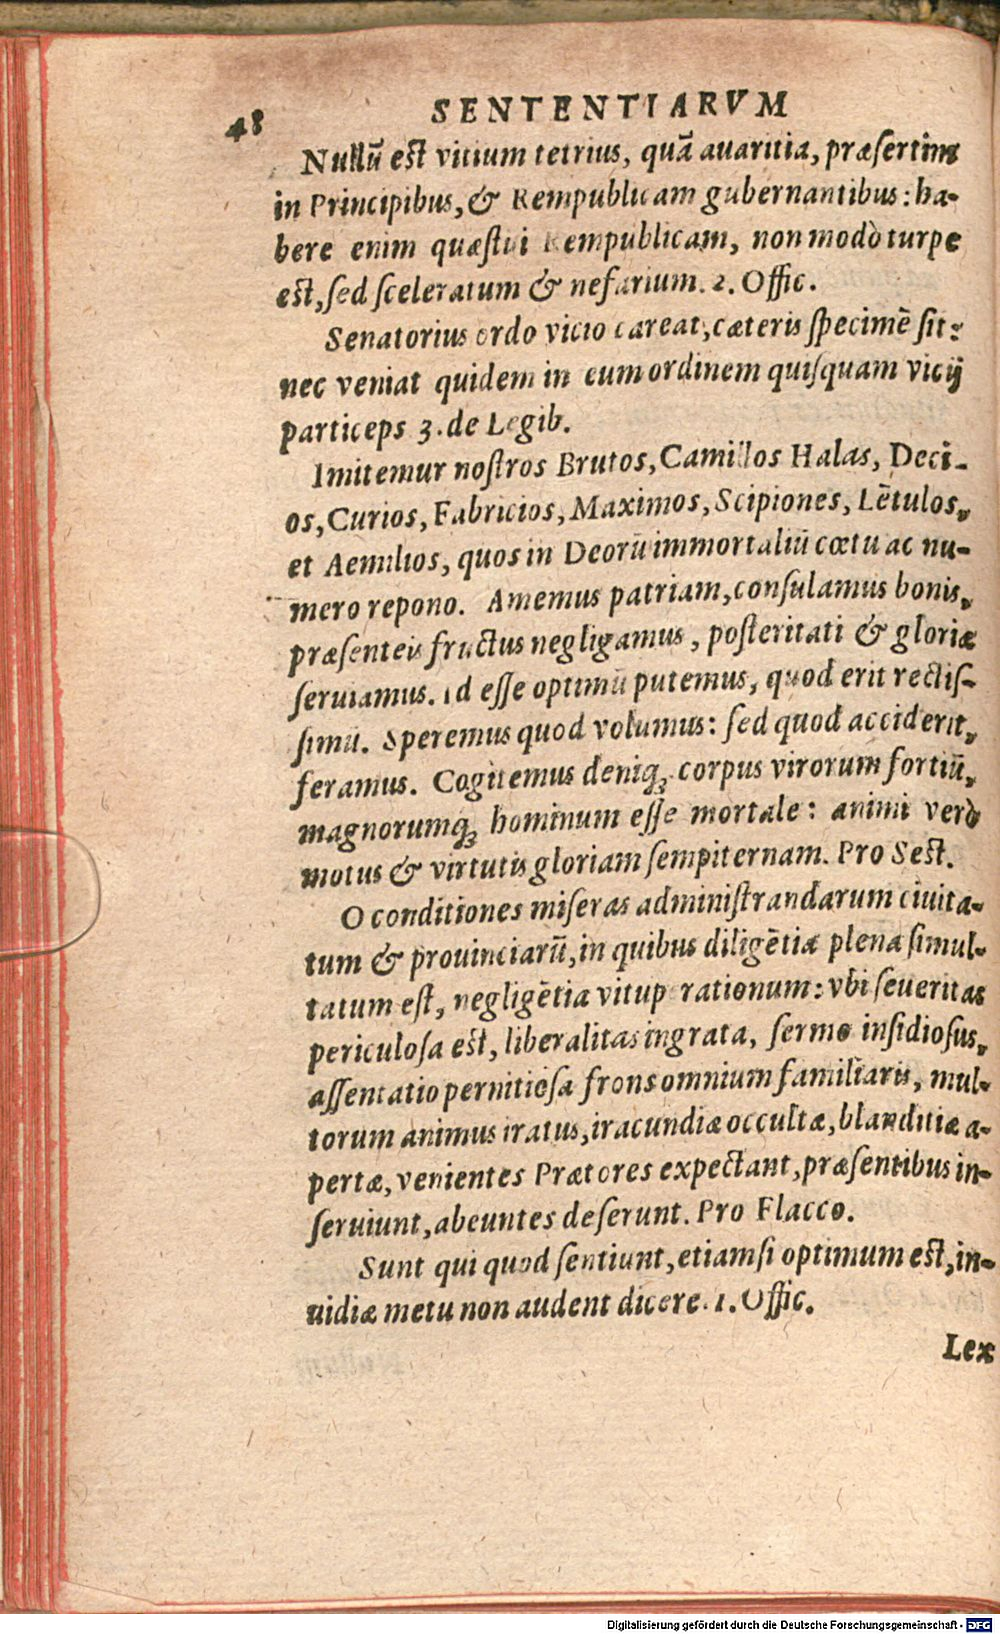 48
SENTENTIARVM
Nullũ est vitium tetrius, quã auaritia, præsertim
in Principibus, & Rempublicam gubernantibus: ha-
bere enim quæstui Rempublicam, non modò turpe
est, sed sceleratum & nefarium. 2. Offic.
Senatorius ordo vicio careat, cæteris specimẽ sit:
nec veniat quidem in eum ordinem quisquam vicij
particeps 3. de Legib.
Imitemur nostros Brutos, Camillos Halas, Deci-
os, Curios, Fabricios, Maximos, Scipiones, Lẽtulos,
et Aemilios, quos in Deorũ immortaliũ cœtu ac nu-
mero repono. Amemus patriam, consulamus bonis,
præsenteis fructus negligamus, posteritati & gloriæ
seruiamus. id esse optimũ putemus, quod erit rectis-
simũ. Speremus quod volumus: sed quod acciderit,
feramus. Cogitemus deniq; corpus virorum fortiũ,
magnorumq; hominum esse mortale: animi verò
motus & virtutis gloriam sempiternam. Pro Sest.
O conditiones miseras administrandarum ciuita-
tum & prouinciarũ, in quibus diligẽtia plena simul-
tatum est, negligẽtia vituperationum: vbi seueritas
periculosa est, liberalitas ingrata, sermo insidiosus,
assentatio pernitiosa frons omnium familiaris, mul-
torum animus iratus, iracundiæ occultæ, blanditiæ a-
pertæ, venientes Prætores expectant, præsentibus in-
seruiunt, abeuntes deserunt. Pro Flacco.
Sunt qui quod sentiunt, etiamsi optimum est, in-
uidiæ metu non audent dicere. 1. Offic.
Lex
Digitalisierung gefördert durch die Deutsche Forschungsgemeinschaft - DFG